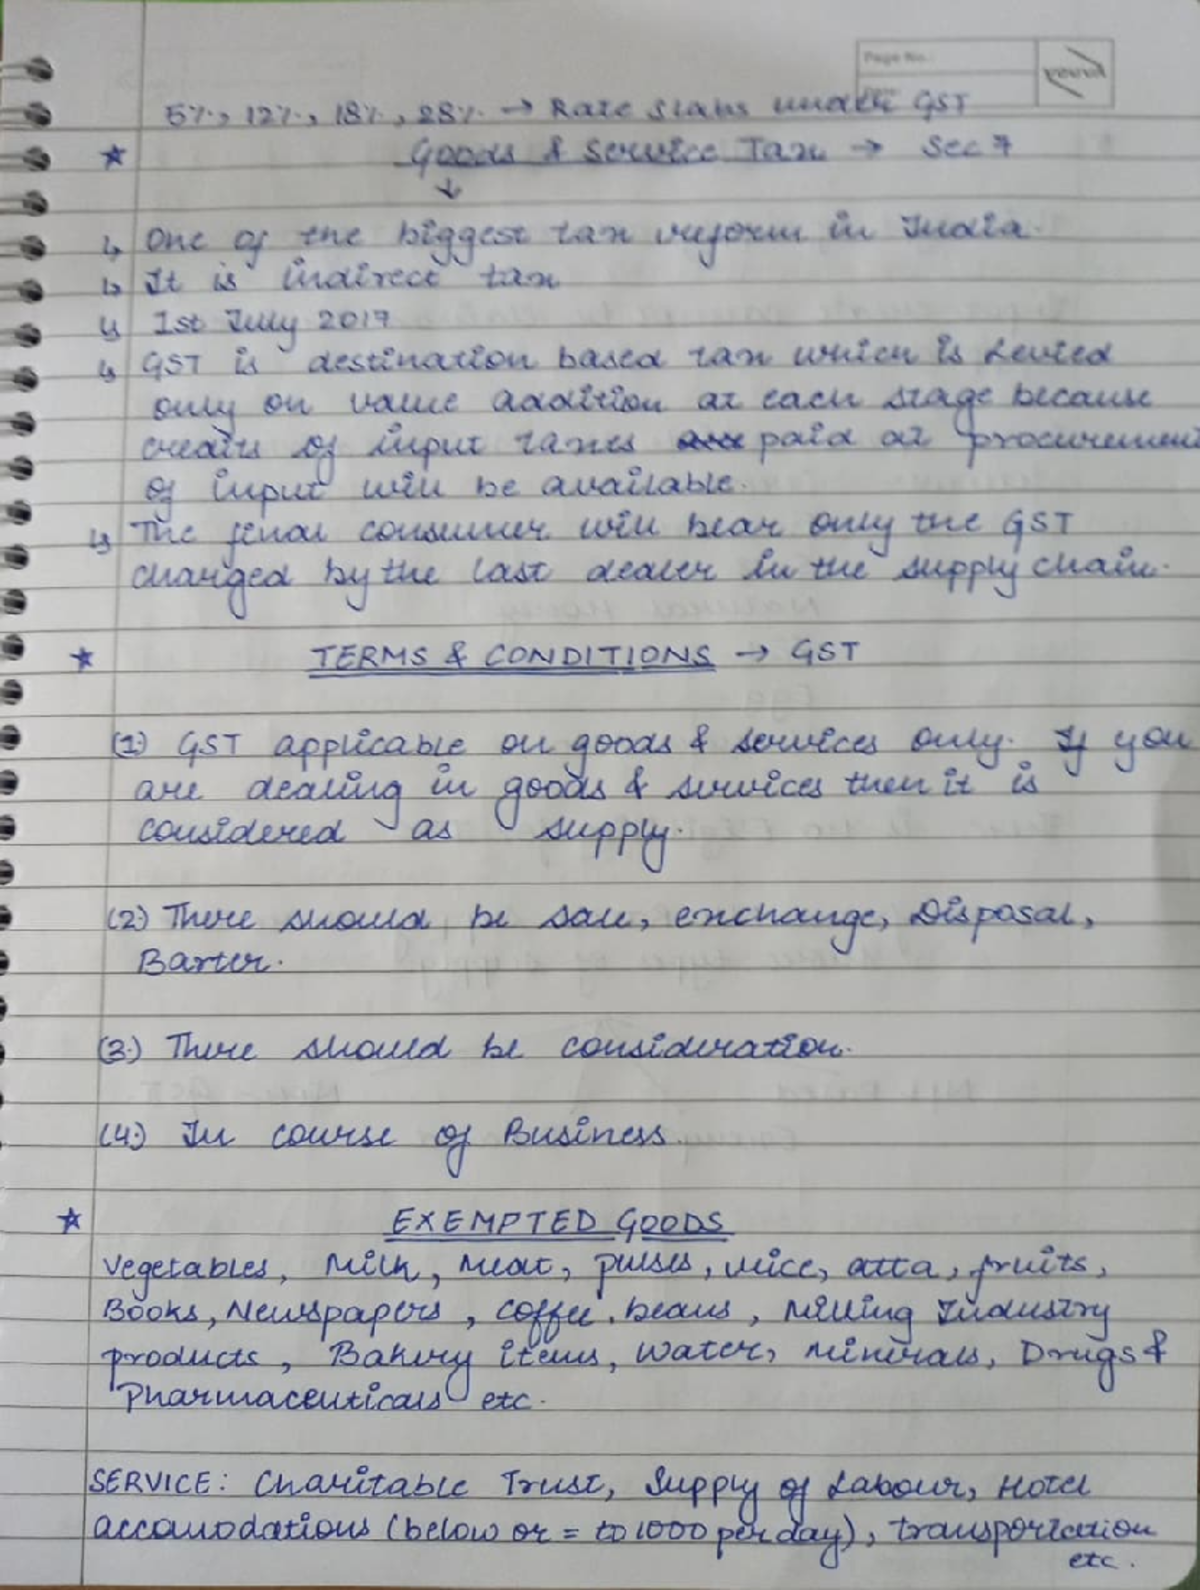 Page No.:
5%, 12%, 18%, 28% → Rate slabs under GST
★ Goods & Service Tax → Sec 7
↓
↳ One of the biggest tax reform in India.
↳ It is indirect tax
↳ 1st July 2017
↳ GST is destination based tax which is levied
only on value addition at each stage because
credits of input taxes paid at procurement
of input will be available.
↳ The final consumer will bear only the GST
charged by the last dealer in the supply chain.
★ TERMS & CONDITIONS → GST
(1.) GST applicable on goods & services only. If you
are dealing in goods & services then it is
considered as supply.
(2.) There should be sale, exchange, Disposal,
Barter.
(3.) There should be consideration.
(4.) In course of Business.
★ EXEMPTED GOODS
Vegetables, Milk, Meat, pulses, rice, atta, fruits,
Books, Newspapers, coffee. beans, Milling Industry
products, Bakery items, water, minerals, Drugs &
Pharmaceuticals etc.
SERVICE: Charitable Trust, Supply of Labour, Hotel
accomodations (below or = to 1000 per day), transportation
etc.